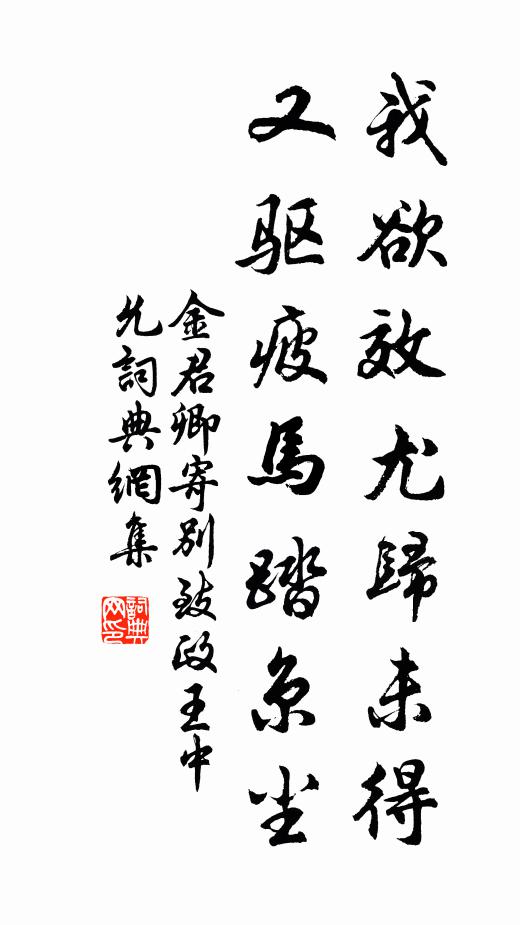 我欲效尤歸未得
又驱疲馬踏京尘
金君卿寄別致政王中
允詞典網集
詞典
网印